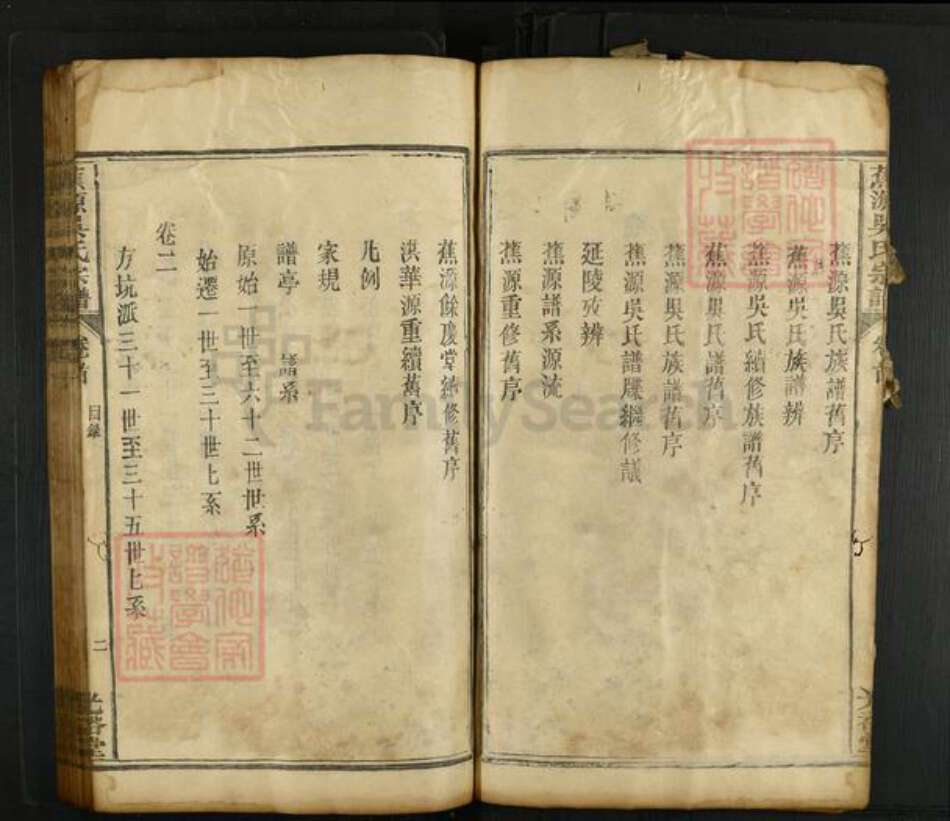 蕉源吳氏族譜舊序
蕉源吳氏族譜辨
蕉源吳氏續修族譜舊序
蕉源吳氏譜舊序
蕉源吳氏族譜舊序
蕉源吳氏譜牒繼修議
延陵攷辨
蕉源譜系源流
蕉源重修舊序
蕉源餘慶堂續修舊序
洪華源重續舊序
凡例
家規
譜亭 譜系
原始一世至六十二世世系
始遷一世至三十世世系
卷二
方坑派三十一世至三十五世世系
蕉源吳氏宗譜
卷首
目錄
二
光裕堂
FamilySearch